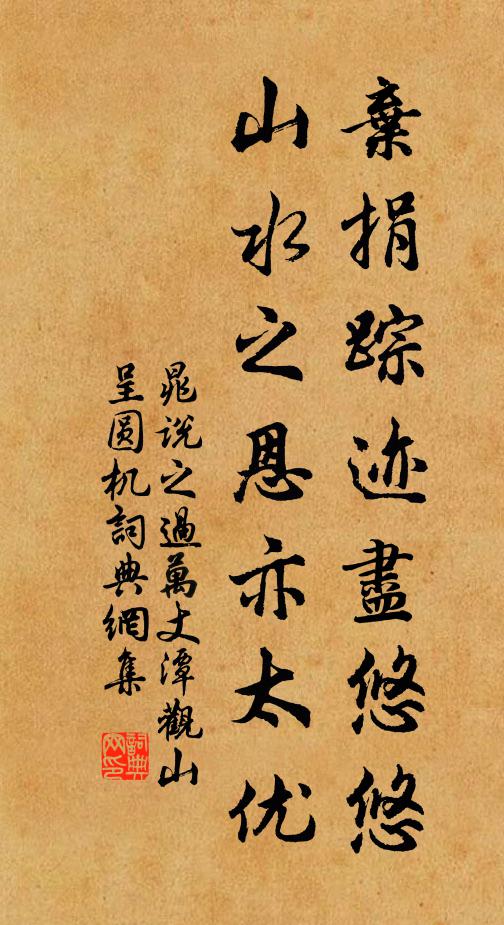 棄捐踪迹盡悠悠
山水之恩亦太优
晁说之過萬丈潭觀山
呈圆机詞典網集
詞典网印